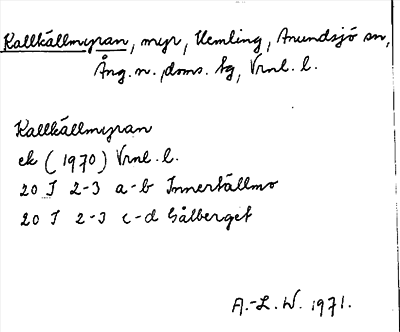 Kallkällmyran, myr, Hemling, Anundsjö sn,
Ång. n. doms. tg, Vrnl. l.
Kallkällmyran
ek (1970) Vrnl. l.
20 I 2-3 a-b Innertällmo
20 I 2-3 c-d Gålberget
A.-L. W. 1971.